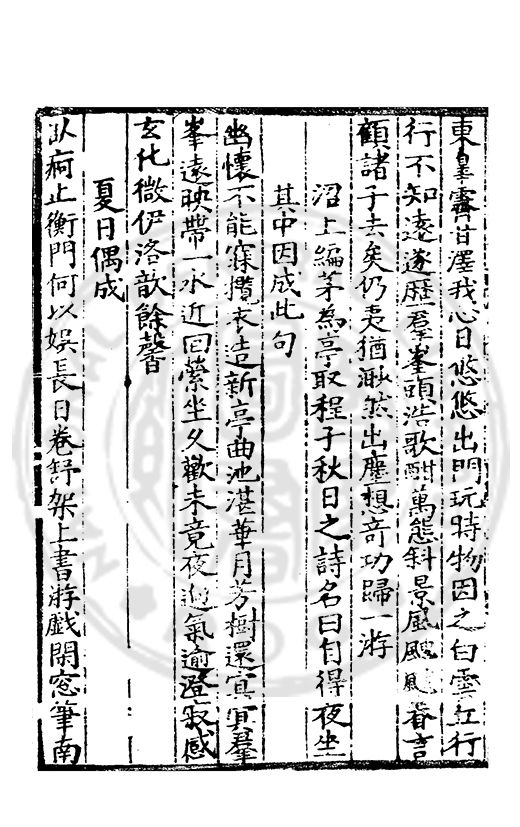 東皐霽甘澤我心日悠悠出門玩時物因之白雲丘行
行不知遠遂歴羣峯頭浩歌酣萬態斜景風颼颼眷言
顧諸子去矣仍夷猶渺然出塵想奇功歸一游
沼上編茅為亭取程子秋日之詩名曰自得夜坐
其中因成此句
幽懷不能寐攬衣造新亭曲池湛華月芳樹還冥冥羣
峯遠映帶一水近回縈坐久歡未竟夜迥氣逾澄寂感
玄化微伊洛歆餘馨
夏日偶成
臥痾止衡門何以娛長日卷舒架上書游戲閑窓筆南